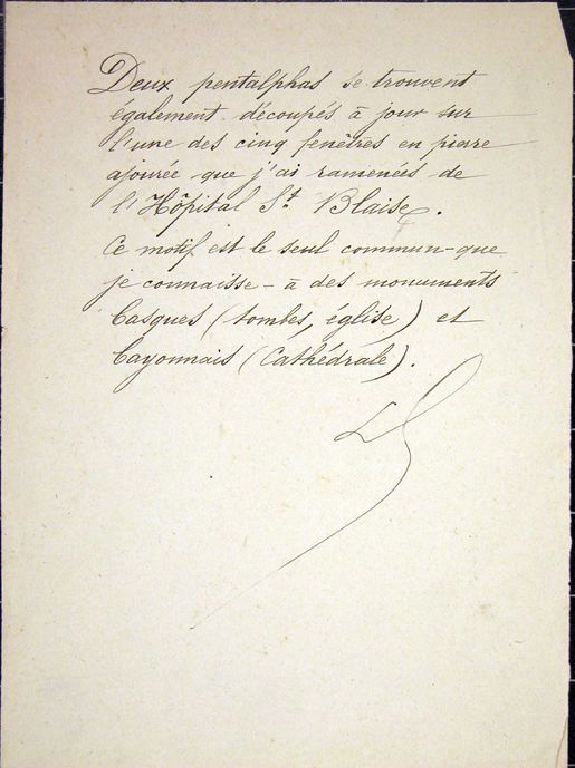 Deux pentalphas se trouvent
également découpés à jour sur
l'une des cinq fenêtres en pierre
ajourée que j'ai ramenées de
l'Hôpital St Blaise.
Ce motif est le seul commun - que
je connaisse - à des monuments
basques (tombes, église) et
bayonnais (Cathédrale).